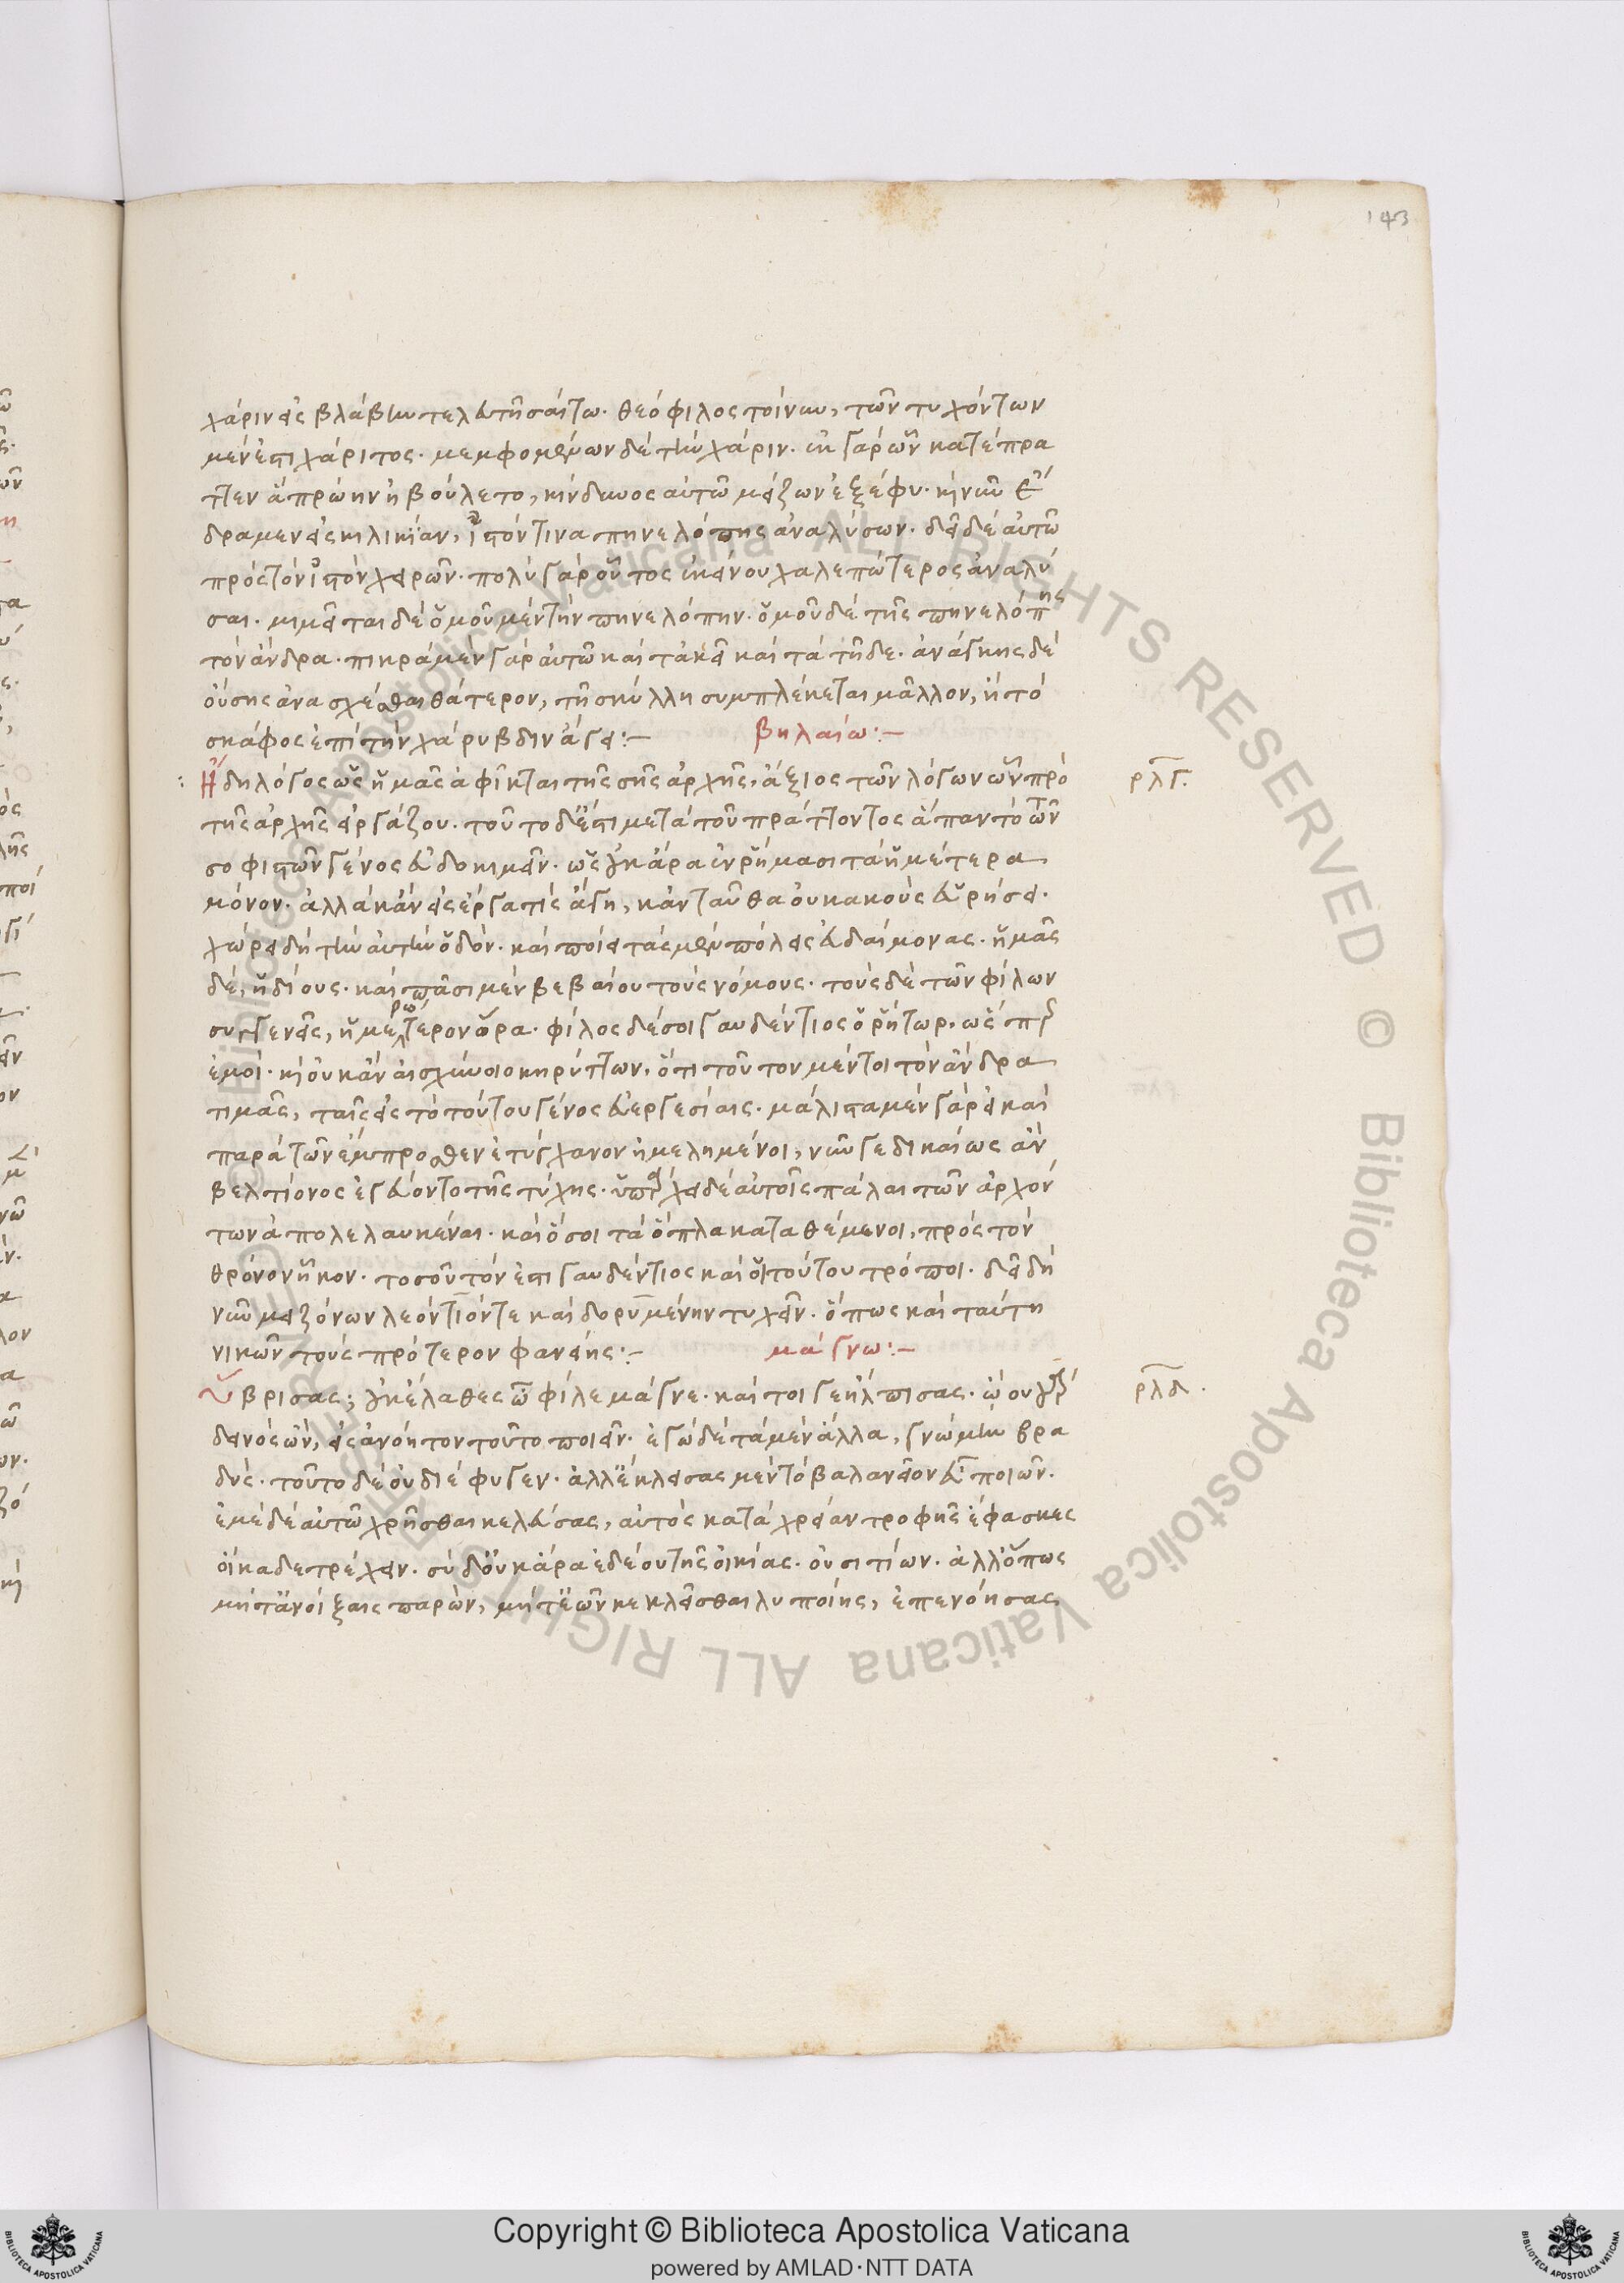 143
χάριν εἰς βλάβην τελευτησάτω. θεόφιλος τοίνυν, τῶν τυχόντων
μὲν ἐστι χάριτος. μεμφομένων δὲ τὴν χάριν. ἐν γὰρ ὧν κατέπρα
ττεν ἃ πρώην ἠβούλετο, κίνδυνος αὐτῷ μείζων ἐξέφυ. καὶ νῦν
δραμεν εἰς κιλικίαν, ἱστόν τινα πηνελόπης ἀναλύσων. δεῖ δὲ αὐτῷ
πρὸς τὸν ἱστὸν χειρῶν. πολὺ γὰρ οὗτος ἐκείνου χαλεπώτερος ἀναλύ
σαι. μιμεῖται δὲ ὁμοῦ μὲν τὴν πηνελόπην. ὁμοῦ δὲ τῆς πηνελόπης
τὸν ἄνδρα. πικρὰ μὲν γὰρ αὐτῷ καὶ τἀκεῖ καὶ τὰ τῇδε. ἀνάγκης δὲ
οὔσης ἀνασχέσθαι θάτερον, τῇ σκύλλῃ συμπλέκεται μᾶλλον, ἢ τὸ
σκάφος ἐπὶ τὴν χάρυβδιν ἄγει:– βηλαίω:–
Ἤδη λόγος ὡς ἡμᾶς ἀφῖκται τῆς σῆς ἀρχῆς, ἄξιος τῶν λόγων ὧν πρὸ
ρλγ.
τῆς ἀρχῆς εἰργάζου. τοῦτο δ' ἔστι μετὰ τοῦ πράττοντος ἅπαν τὸ τῶν
σοφιστῶν γένος εὐδοκιμεῖν. ὡς οὐκ ἄρα ἐν ῥήμασι τὰ ἡμέτερα
μόνον. ἀλλὰ κἂν εἰς ἔργα τις ἄγῃ, κἀνταῦθα οὐ κακοὺς εὑρήσει.
χώρει δὴ τὴν αὐτὴν ὁδόν. καὶ ποίει τὰς μὲν πόλεις εὐδαίμονας. ἡμᾶς
δέ, ἡδίους. καὶ πᾶσι μὲν βεβαίου τοὺς νόμους. τοὺς δὲ τῶν φίλων
συγγενεῖς, ἡμερώτερον ὅρα. φίλος δέ σοι γαυδέντιος ὁ ῥήτωρ. ὡς
ἐμοί. καὶ οὐκ ἂν αἰσχύνοιο κηρύττων, ὅτι τοῦτον μέντοι τὸν ἄνδρα
τιμᾷς, ταῖς εἰς τὸ τούτου γένος εὐεργεσίαις. μάλιστα μὲν γὰρ εἰ καὶ
παρὰ τῶν ἔμπροσθεν ἐτύγχανον ἠμελημένοι, νῦν γε δικαίως ἂν
βελτίονος ἐγεύοντο τῆς τύχης. ὑπάρχει δὲ αὐτοῖς πάλαι τῶν ἀρχόν
των ἀπολελαυκέναι. καὶ ὅσοι τὰ ὅπλα καταθέμενοι, πρὸς τὸν
θρόνον ἧκον. τοσοῦτόν ἐστι γαυδέντιος καὶ οἱ τούτου τρόποι. δεῖ δὴ
νῦν μειζόνων λεόντιόν τε καὶ δορυμένην τυχεῖν. ὅπως καὶ ταύτῃ
νικῶν τοὺς πρότερον φανείης:– μάγνω:–
Ὕβρισας; οὐκ ἔλαθες ὦ φίλε μάγνε. καίτοι γε ἤλπισας.
ρλδ.
δεινὸς ὤν, εἰς ἀνόητον τοῦτο ποιεῖν. ἐγὼ δὲ τὰ μὲν ἄλλα, γνώμην βρα
δύς. τοῦτο δὲ οὐ διέφυγεν. ἀλλ' ἔκλεισας μὲν τὸ βαλανεῖον εὖ ποιῶν.
ἐμὲ δὲ αὐτῷ χρῆσθαι κελεύσας, αὐτὸς κατὰ χρείαν τροφῆς ἔφασκες
οἴκαδε τρέχειν. σὺ δ' οὐκ ἄρα ἐδέου τῆς οἰκίας. οὐ σιτίων. ἀλλ' ὅπως
μήτ' ἀνοίξαις παρών, μήτ' ἐῶν κεκλεῖσθαι λυποίης, ἐπενόησας
Copyright © Biblioteca Apostolica Vaticana
powered by AMLAD·NTT DATA